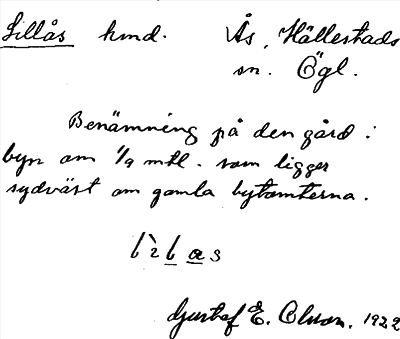 Lillås hmd. Ås, Hällestads
sn. Ögl.
Benämning på den gård i
byn om 1/9 mtl. som ligger
sydväst om gamla bytomterna.
Gustaf E. Olsson. 1922